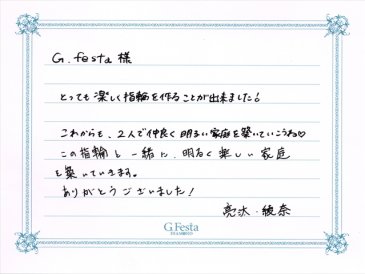 G.festa 様
とっても楽しく指輪を作ることが出来ました!
これからも、2人で仲良く明るい家庭を築いていこうね♡
この指輪と一緒に、明るく楽しい家庭
を築いていきます。
ありがとうございました!
亮汰・綾奈
G.Festa